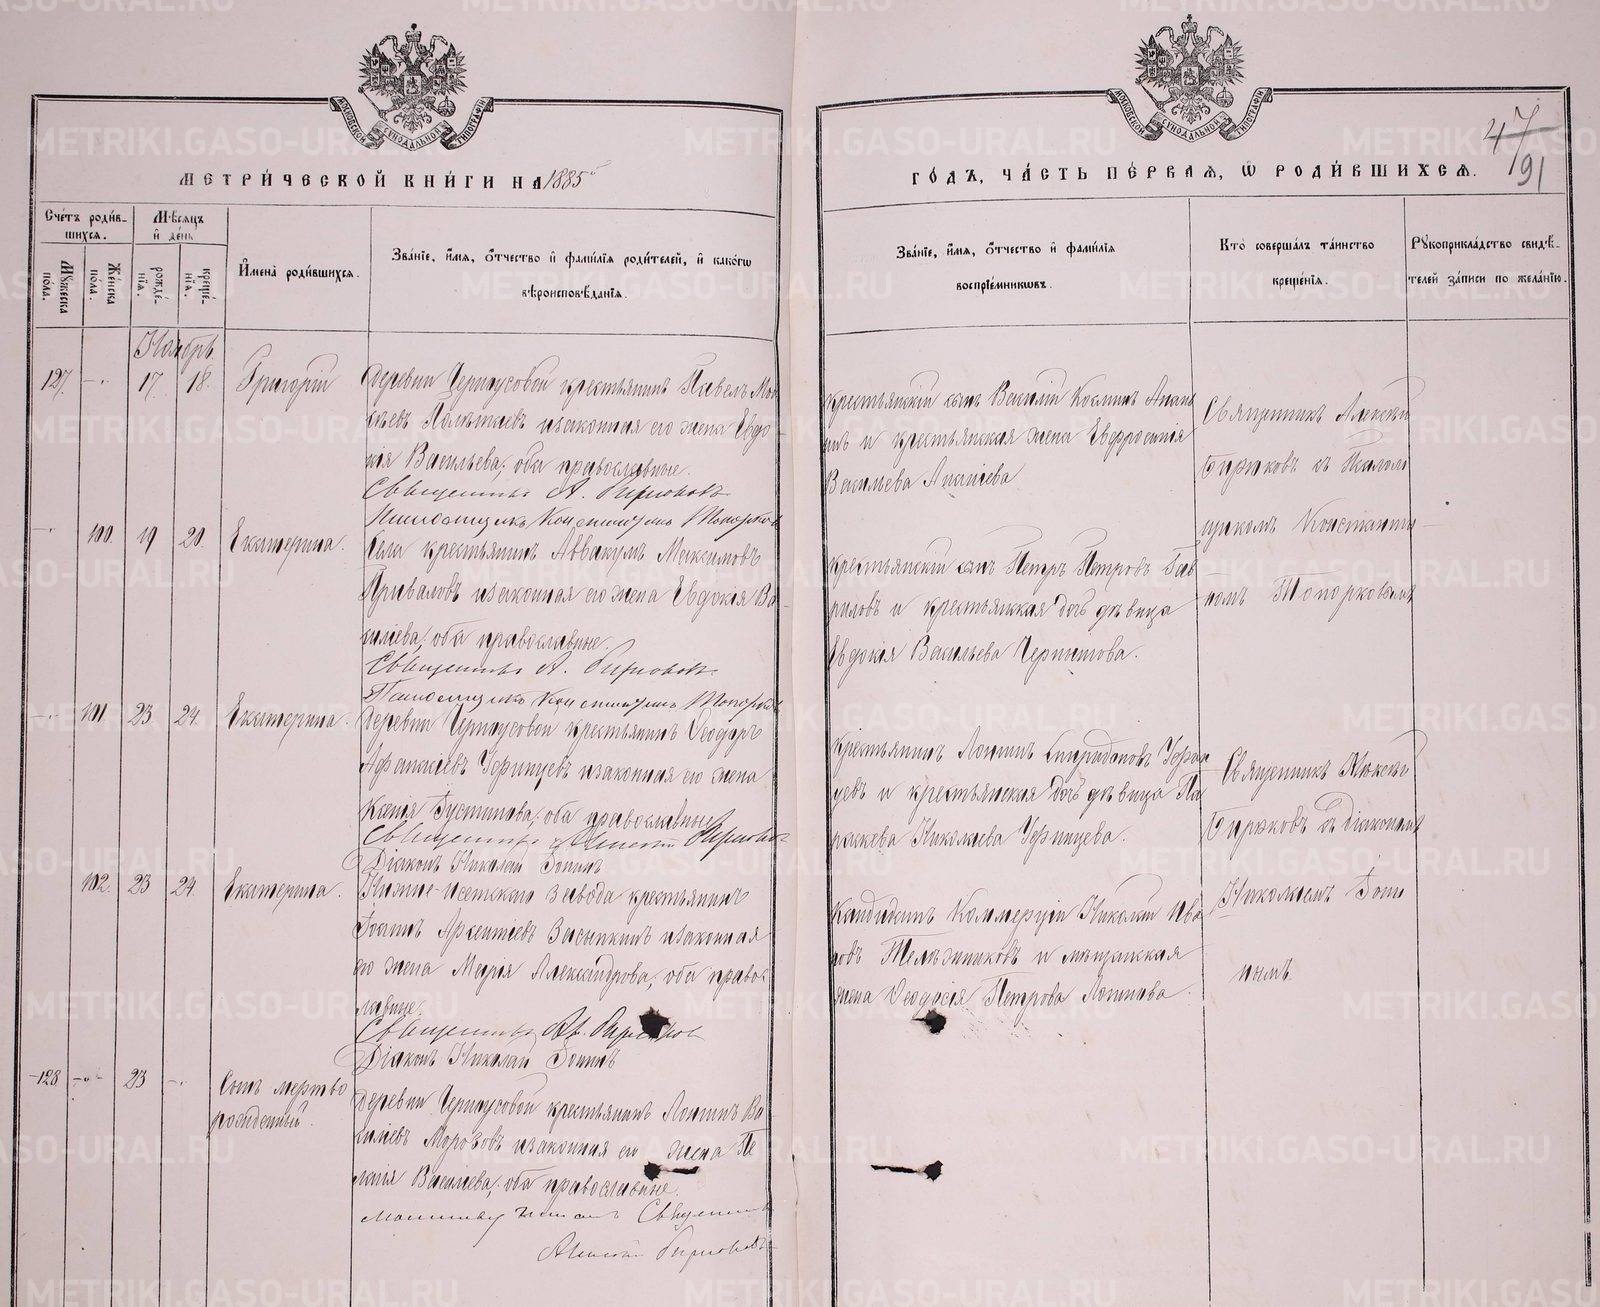 МЕТРИ́ЧЕСКОЙ КНИ́ГИ НА 1885й
ГО́ДЪ, ЧА́СТЬ ПЕ́РВАЯ, Ѡ РОДИ́ВШИХСЯ.
47
91
МОСКОВСКОЙ СѴНОДАЛЬНОЙ ТИПОГРАФІИ
МОСКОВСКОЙ СѴНОДАЛЬНОЙ ТИПОГРАФІИ
Сче́тъ роди́вшихся.
Мѣ́сяцъ и҆ де́нь
Мꙋ́жеска по́ла.
Же́нска по́ла.
рожде́нїя.
креще́нїя.
И҆мена̀ роди́вшихся.
Зва́нїе, и҆́мя, ѻ҆́тчество и҆ фами́лїя роди́телей, и҆ како́гѡ
вѣроисповѣ́данїя.
Зва́нїе, и҆́мя, ѻ҆́тчество и҆ фами́лїя
воспрїе́мникѡвъ.
Кто̀ соверша́лъ та́инство
креще́нїя.
Рꙋкоприкла́дство свидѣ́телей за́писи по жела́нїю.
Ноябрь.
127. 17. 18. Григорій
Деревни Черноусовой крестьянинъ Павелъ Мои
сѣевъ и законная его жена Евдо
кія Васильева, оба православные.
Священникъ А. Бирюковъ
Псаломщикъ Константинъ Топорков
крестьянскій сынъ Василій Косминъ
и крестьянская жена Евфросинія
Васильева
Священникъ Алексѣй
Бирюковъ съ Псалом
щикомъ Константи
номъ Топорковымъ
100. 19 20. Екатерина.
Села крестьянинъ Аввакумъ Максимовъ
Приваловъ и законная его жена Евдокія Ва
силіева, оба православные.
Священникъ А. Бирюковъ
Псаломщикъ Константинъ Топорков
крестьянскій сынъ Петръ Петровъ Гав
риловъ и крестьянская дочь дѣвица
Евдокія Васильева
101 23 24. Екатерина.
Деревни Черноусовой крестьянинъ Ѳеодоръ
Афанасіевъ Уфинцевъ и законная его жена
Ксенія Іустинова, оба православные.
Священникъ Алексій Бирюковъ
Діаконъ Николай Іонинъ
крестьянинъ Логинъ Спиридоновъ Уфин
цевъ и крестьянская дочь дѣвица Па
раскева Николаева Уфинцева.
Священникъ Алексѣй
Бирюковъ съ Діакономъ
Николаемъ Іони
нымъ
102. 23 24. Екатерина.
Нижне-Исетскаго Завода крестьянинъ
Іоаннъ Арсентіевъ Засыпкинъ и законная
его жена Марія Александрова, оба правос
лавные.
Священникъ Ал. Бирюков
Діаконъ Николай Іонинъ
Кандидатъ Коммерціи Николай Ива
новъ Телѣжниковъ и мѣщанская
жена Ѳеодосія Петрова Логинова.
128 23 Сынъ мертво
рожденный.
деревни Черноусовой крестьянинъ Логинъ Ва
силіевъ Морозовъ и законная его жена Пе
лагія Василіева, оба православные.
Молитву читалъ Священникъ
Алексій Бирюковъ
METRIKI.GASO-URAL.RU